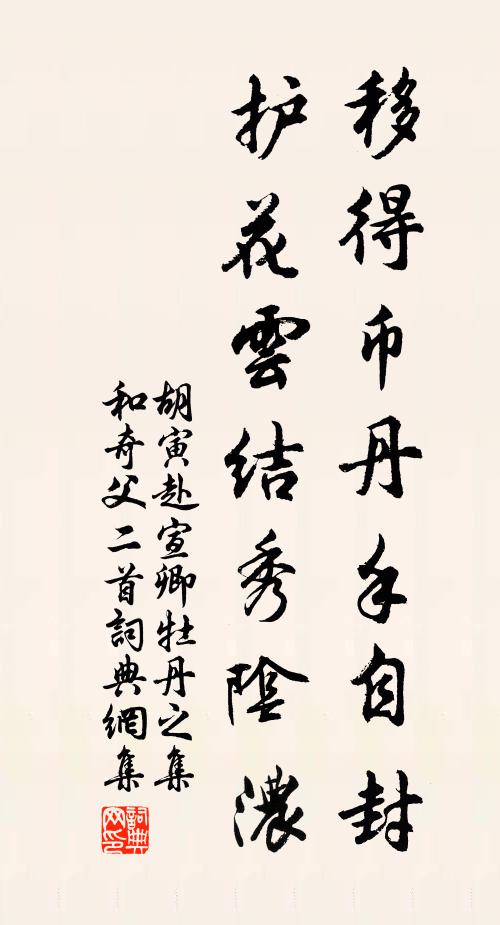 移得币丹手自封
护花雲结秀陰濃
胡寅赴宣卿牡丹之集
和奇父二首詞典網集
詞典網印